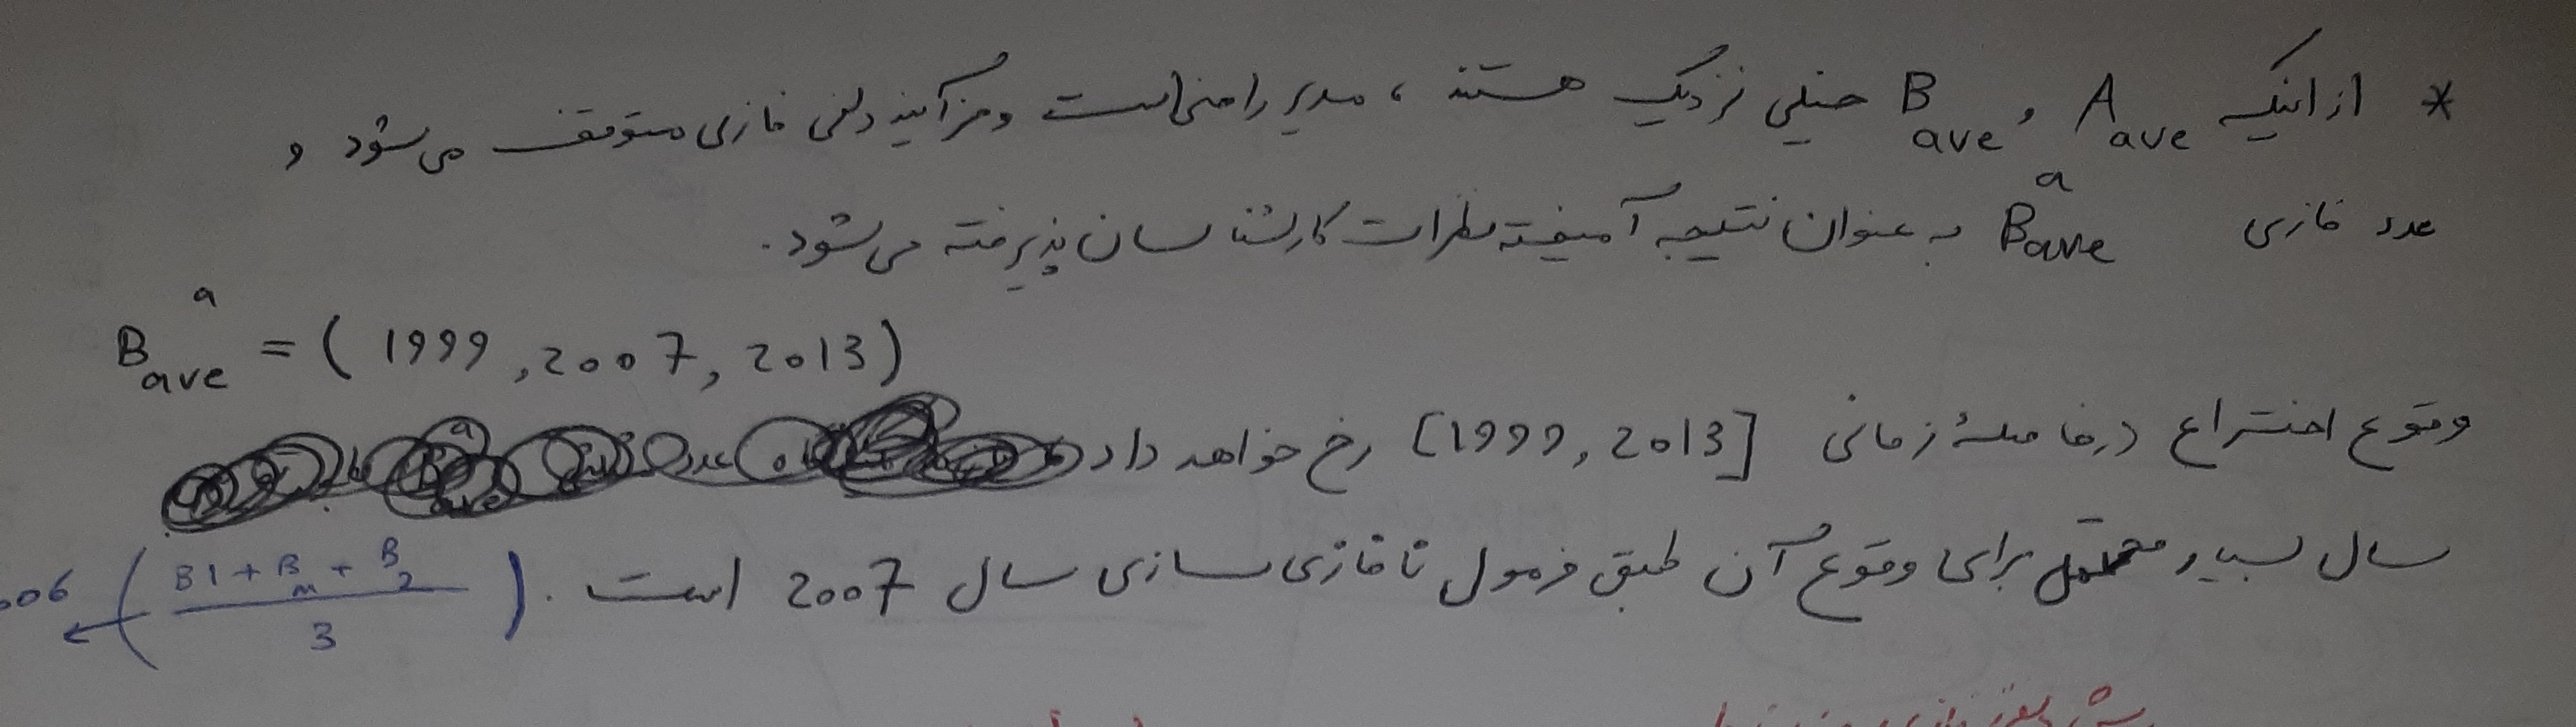 * از اینکه A ave و B ave خیلی نزدیک هستند ، مدیر راضی است و فرآیند دلفی فازی متوقف می شود و
عدد فازی B ave a به عنوان نتیجه آمیخته نظرات کارشناسان پذیرفته می شود.
B ave a = ( 1999 , 2007 , 2013 )
وقوع اختراع در فاصلهٔ زمانی [1999 , 2013] رخ خواهد داد
سال بسیار محتمل برای وقوع آن طبق فرمول نافازی سازی سال 2007 است . ( B1 + Bm + B2 / 3 ) → 006